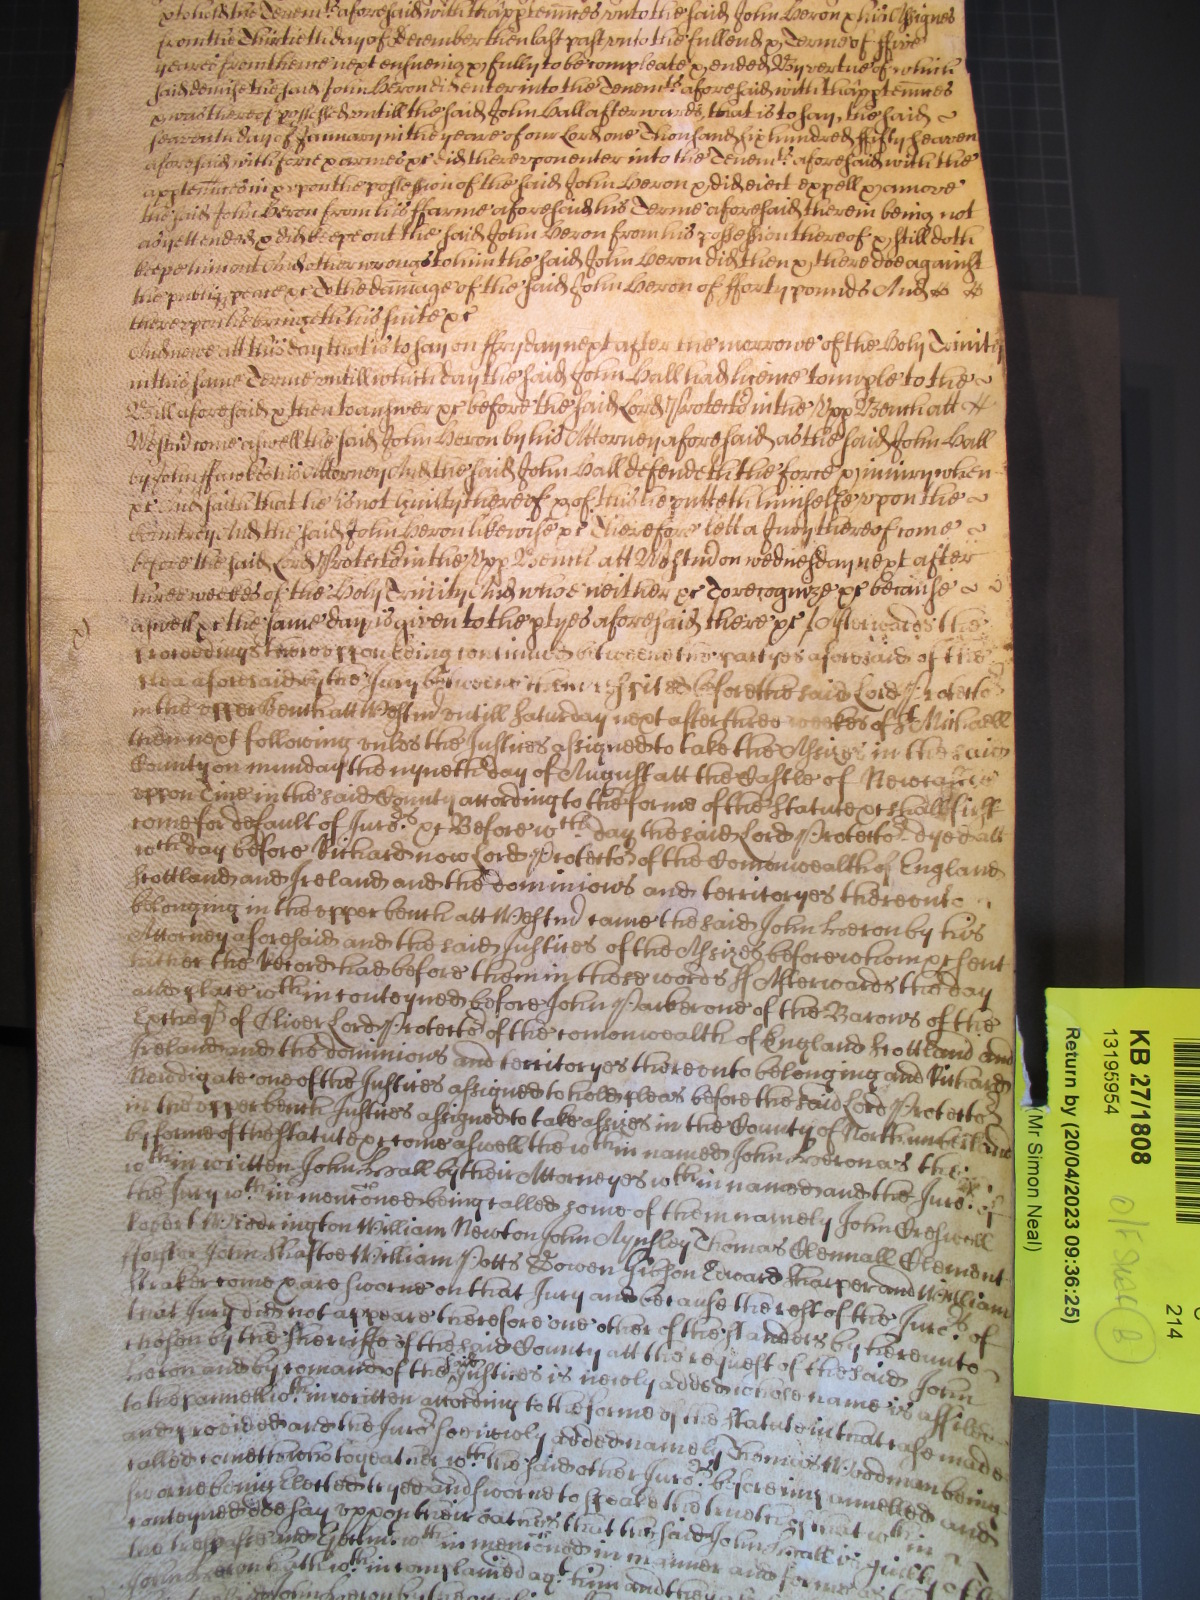 to hold the Tenemts aforesaid with thapptennces unto the said John Heron & his Assignes
from the Thirtieth day of december then last past unto the full end & Terme of ffive
yeares from thence next ensueing & fully to be compleate & ended By vertue of which
said demise the said John Heron did enter into the Tenemts aforesaid with thapptennces
& was thereof possessed untill the said John Hall afterwards, that is to say, the said
seaventh day of January in the yeare of our Lord one Thousand six hundred ffifty seaven
aforesaid with force & armes &c did thereupon enter into the Tenemts aforesaid with the
apptennces in & upon the possession of the said John Heron & did eject expell & amove
the said John Heron from his ffarme aforesaid his Terme aforesaid therein being not
as yett ended & did keepe out the said John Heron from his possession thereof & still doth
keepe him out And other wrongs to him the said John Heron did then & there doe against
the publiq peace &c To the dammage of the said John Heron of fforty pounds And
thereupon he bringeth his suite &c
And nowe att this day that is to say on ffryday next after the morrowe of the Holy Trinity
in this same Terme untill which day the said John Hall had licence to imple to the
Bill aforesaid & then to answer &c before the said Lord Protector in the Upp Bench att
Westmr come aswell the said John Heron by his Attorney aforesaid as the said John Hall
by his Attorney And the said John Hall defendeth the force & iniury when
&c And saith that he is not guilty thereof & of this he putteth himselfe upon the
Countrey And the said John Heron likewise &c Therefore lett a Jury thereof come
before the said Lord Protector in the Upp Bench att Westmr on wednesday next after
three weekes of the Holy Trinity And whoe neither &c To recognize &c because
aswell &c the same day is given to the ptyes aforesaid there &c Afterwards the
proceedings thereuppon being continued betweene the partyes aforesaid of the
plea aforesaid by the Jury betweene them respited before the said Lord Protector
in the upper Bench att Westmr untill Saturday next after three weekes of St Michaell
then next following unles the Justices assigned to take the Assizes in the said
County on munday the nyneth day of August att the Castle of Newcastle
uppon Tine in the said County according to the forme of the Statute &c shall first
come for default of Juro:rs &c Before wch day the said Lord Protector dyed att
wch day before Richard now Lord Protector of the Comonwealth of England
Scottland and Ireland and the dominions and territoryes thereonto
belonging in the upper bench att Westmr came the said John Heron by his
Attorney aforesaid and the said Justices of the Assizes before whom &c sent
hither the Record had before them in these words ss Afterwards the day
and place wthin conteyned before John Parker one of the Barons of the
Excheqr of Oliver Lord Protector of the comonwealth of England Scottland and
Ireland and the dominions and territoryes thereonto belonging and Richard
Newdigate one of the Justices assigned to hold pleas before the said Lord Protector
in the upper bench Justices assigned to take assizes in the County of Northumberland
by forme of the statute &c come aswell the wthin named John Heron as the
wthin written John Hall by their Attorneyes wthin named and the Juro:rs of
the Jury wthin mentoned being called some of them namely John Creswell
Robert Widdrington William Newton John Aynsley Thomas Clennall Clement
fforster John Shaftoe William Potts Bowen Gibson Edward Sharper and William
Straker come & are sworne on that Jury and because the rest of the Juro:rs of
that Jury did not appeare therefore one other of the standers by thereunto
chosen by the Sherriffe of the said County att the request of the said John
Heron and by comand of the said Justices is newly added whose name is affiled
to the pannell wthin written according to the forme of the Statute in that case made
and provided and the Juror soe newly added namely Thomas Woodman being
called cometh who togeather wth the said other Juro:rs before impannelled and
sworne being Elected tryed and sworne to speake the trueth of that wthin
conteyned doe say uppon their oathes that the said John Hall is guilty of
the trespasse and Ejectmt wthin mentoned in manner and forme as
John Heron hath wthin complained agt him and they